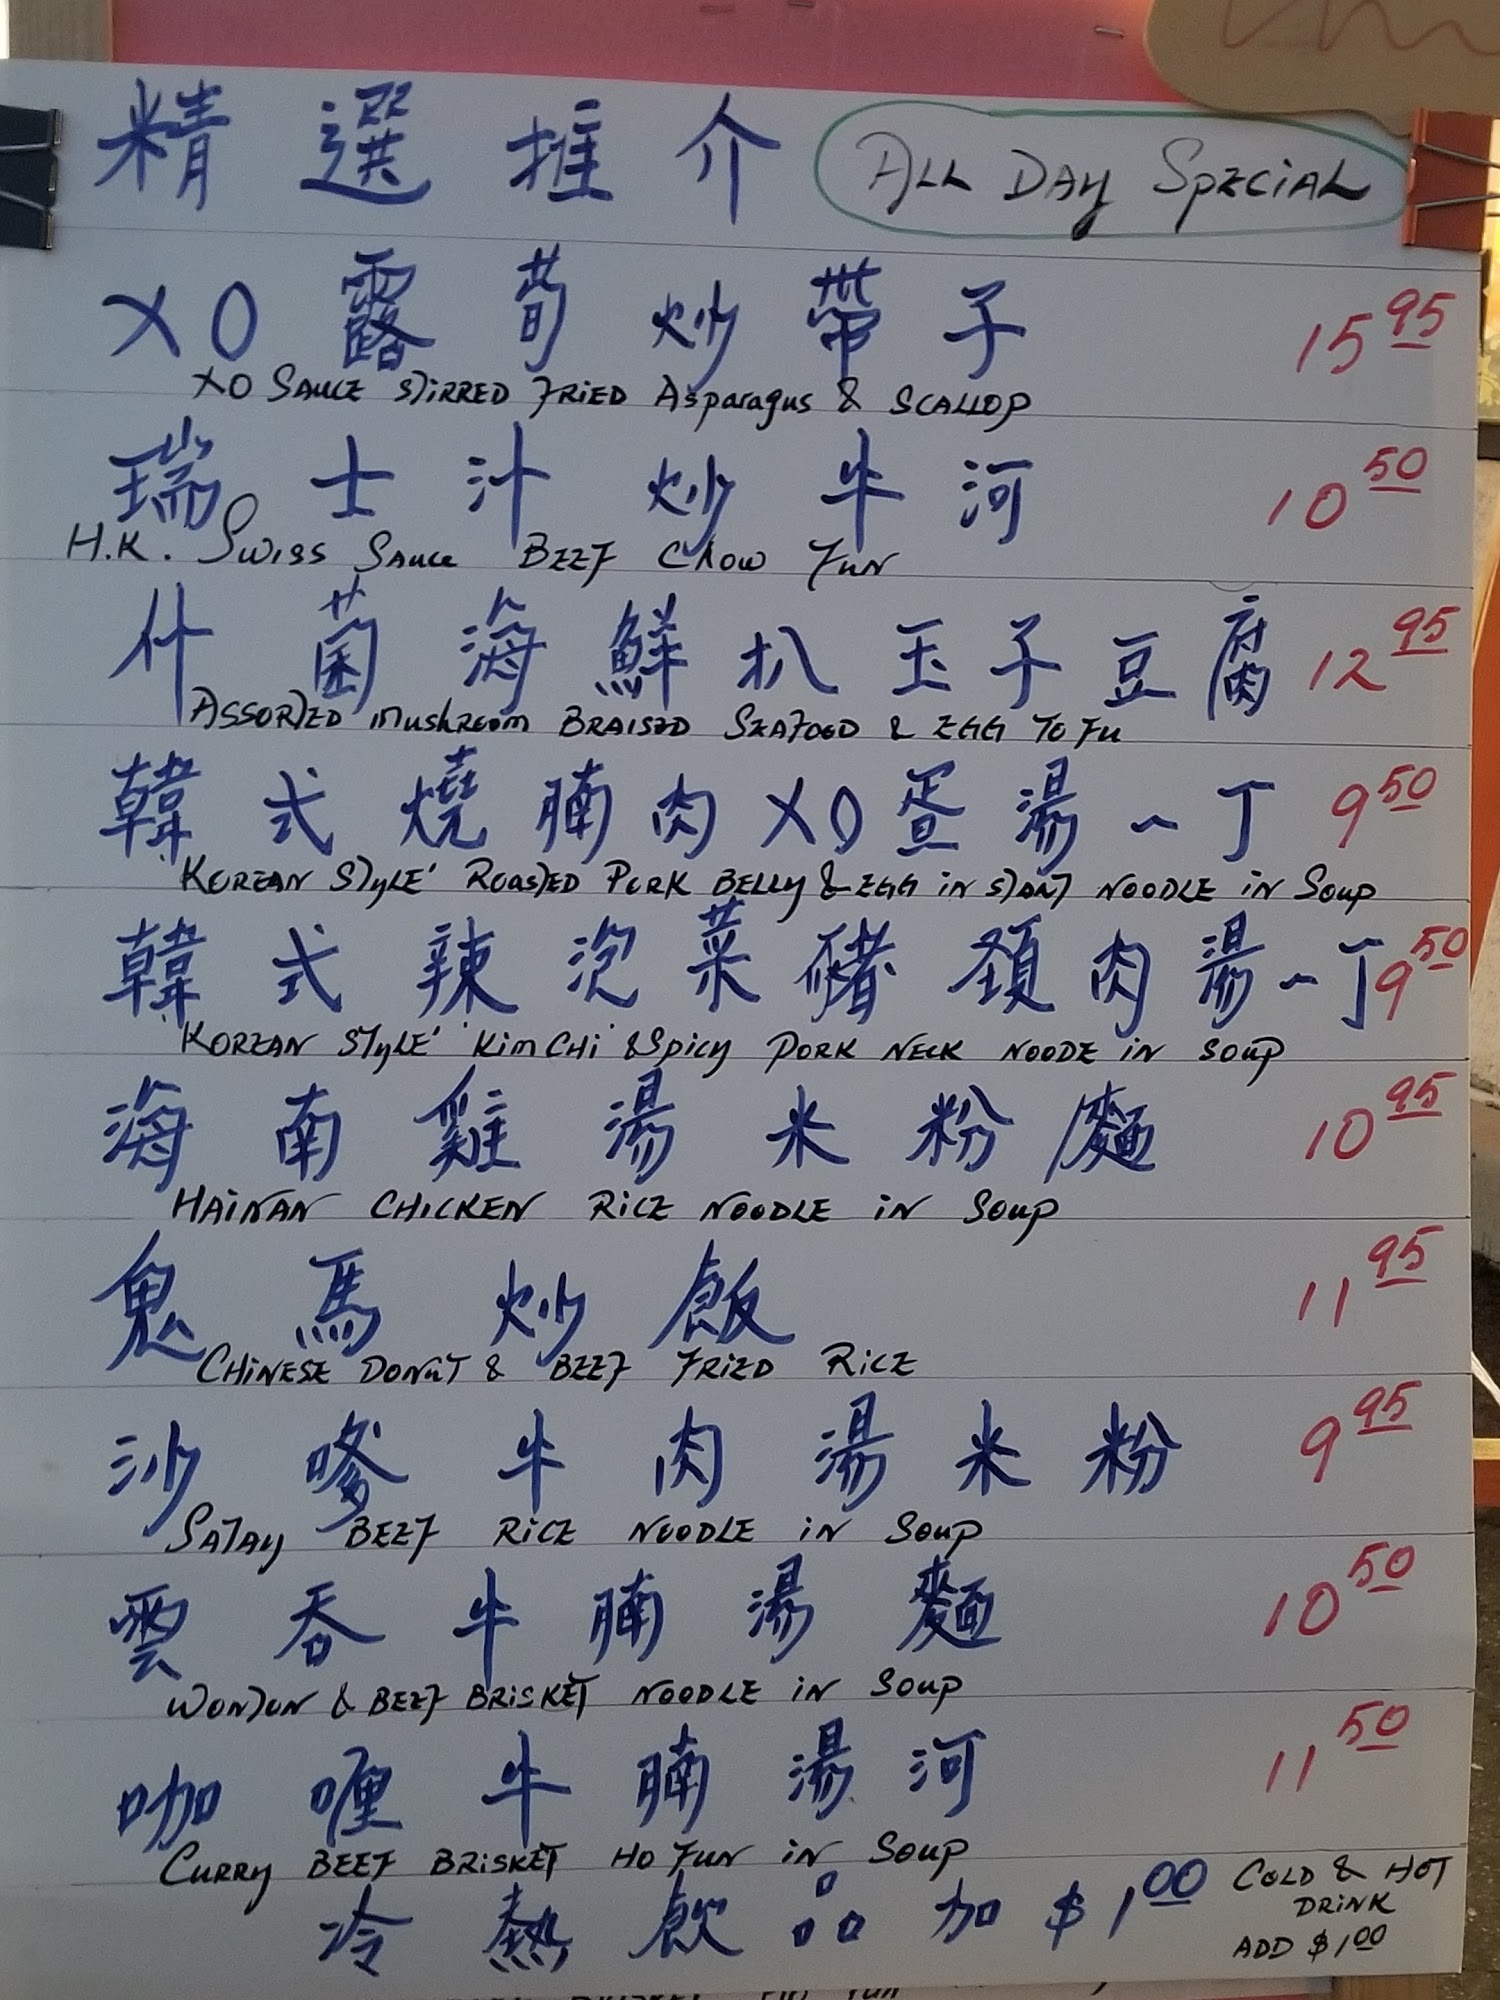 精選推介 ALL DAY SPECIAL
XO露荀炒帶子 15 95
XO SAUCE STIRRED FRIED Asparagus & SCALLOP
瑞士汁炒牛河 10 50
H.K. SWISS SAUCE BEEF CHOW FUN
什菌海鮮扒玉子豆腐 12 95
ASSORTED MUSHROOM BRAISED SEAFOOD & EGG TO FU
韓式燒腩肉XO蛋湯一丁 9 50
KOREAN STYLE' ROASTED PORK BELLY & EGG IN STANT NOODLE IN SOUP
韓式辣泡菜豬頚肉湯一丁 9 50
KOREAN STYLE' 'KIMCHI' & SPICY PORK NECK NOODE IN SOUP
海南雞湯米粉/麵 10 95
HAINAN CHICKEN RICE NOODLE IN SOUP
鬼馬炒飯 11 95
CHINESE DONUT & BEEF FRIED RICE
沙嗲牛肉湯米粉 9 95
SATAY BEEF RICE NOODLE IN SOUP
雲吞牛腩湯麵 10 50
WONTON & BEEF BRISKET NOODLE IN SOUP
咖喱牛腩湯河 11 50
CURRY BEEF BRISKET HO FUN IN SOUP
冷熱飲品加 $1 00 COLD & HOT
DRINK
ADD $1 00